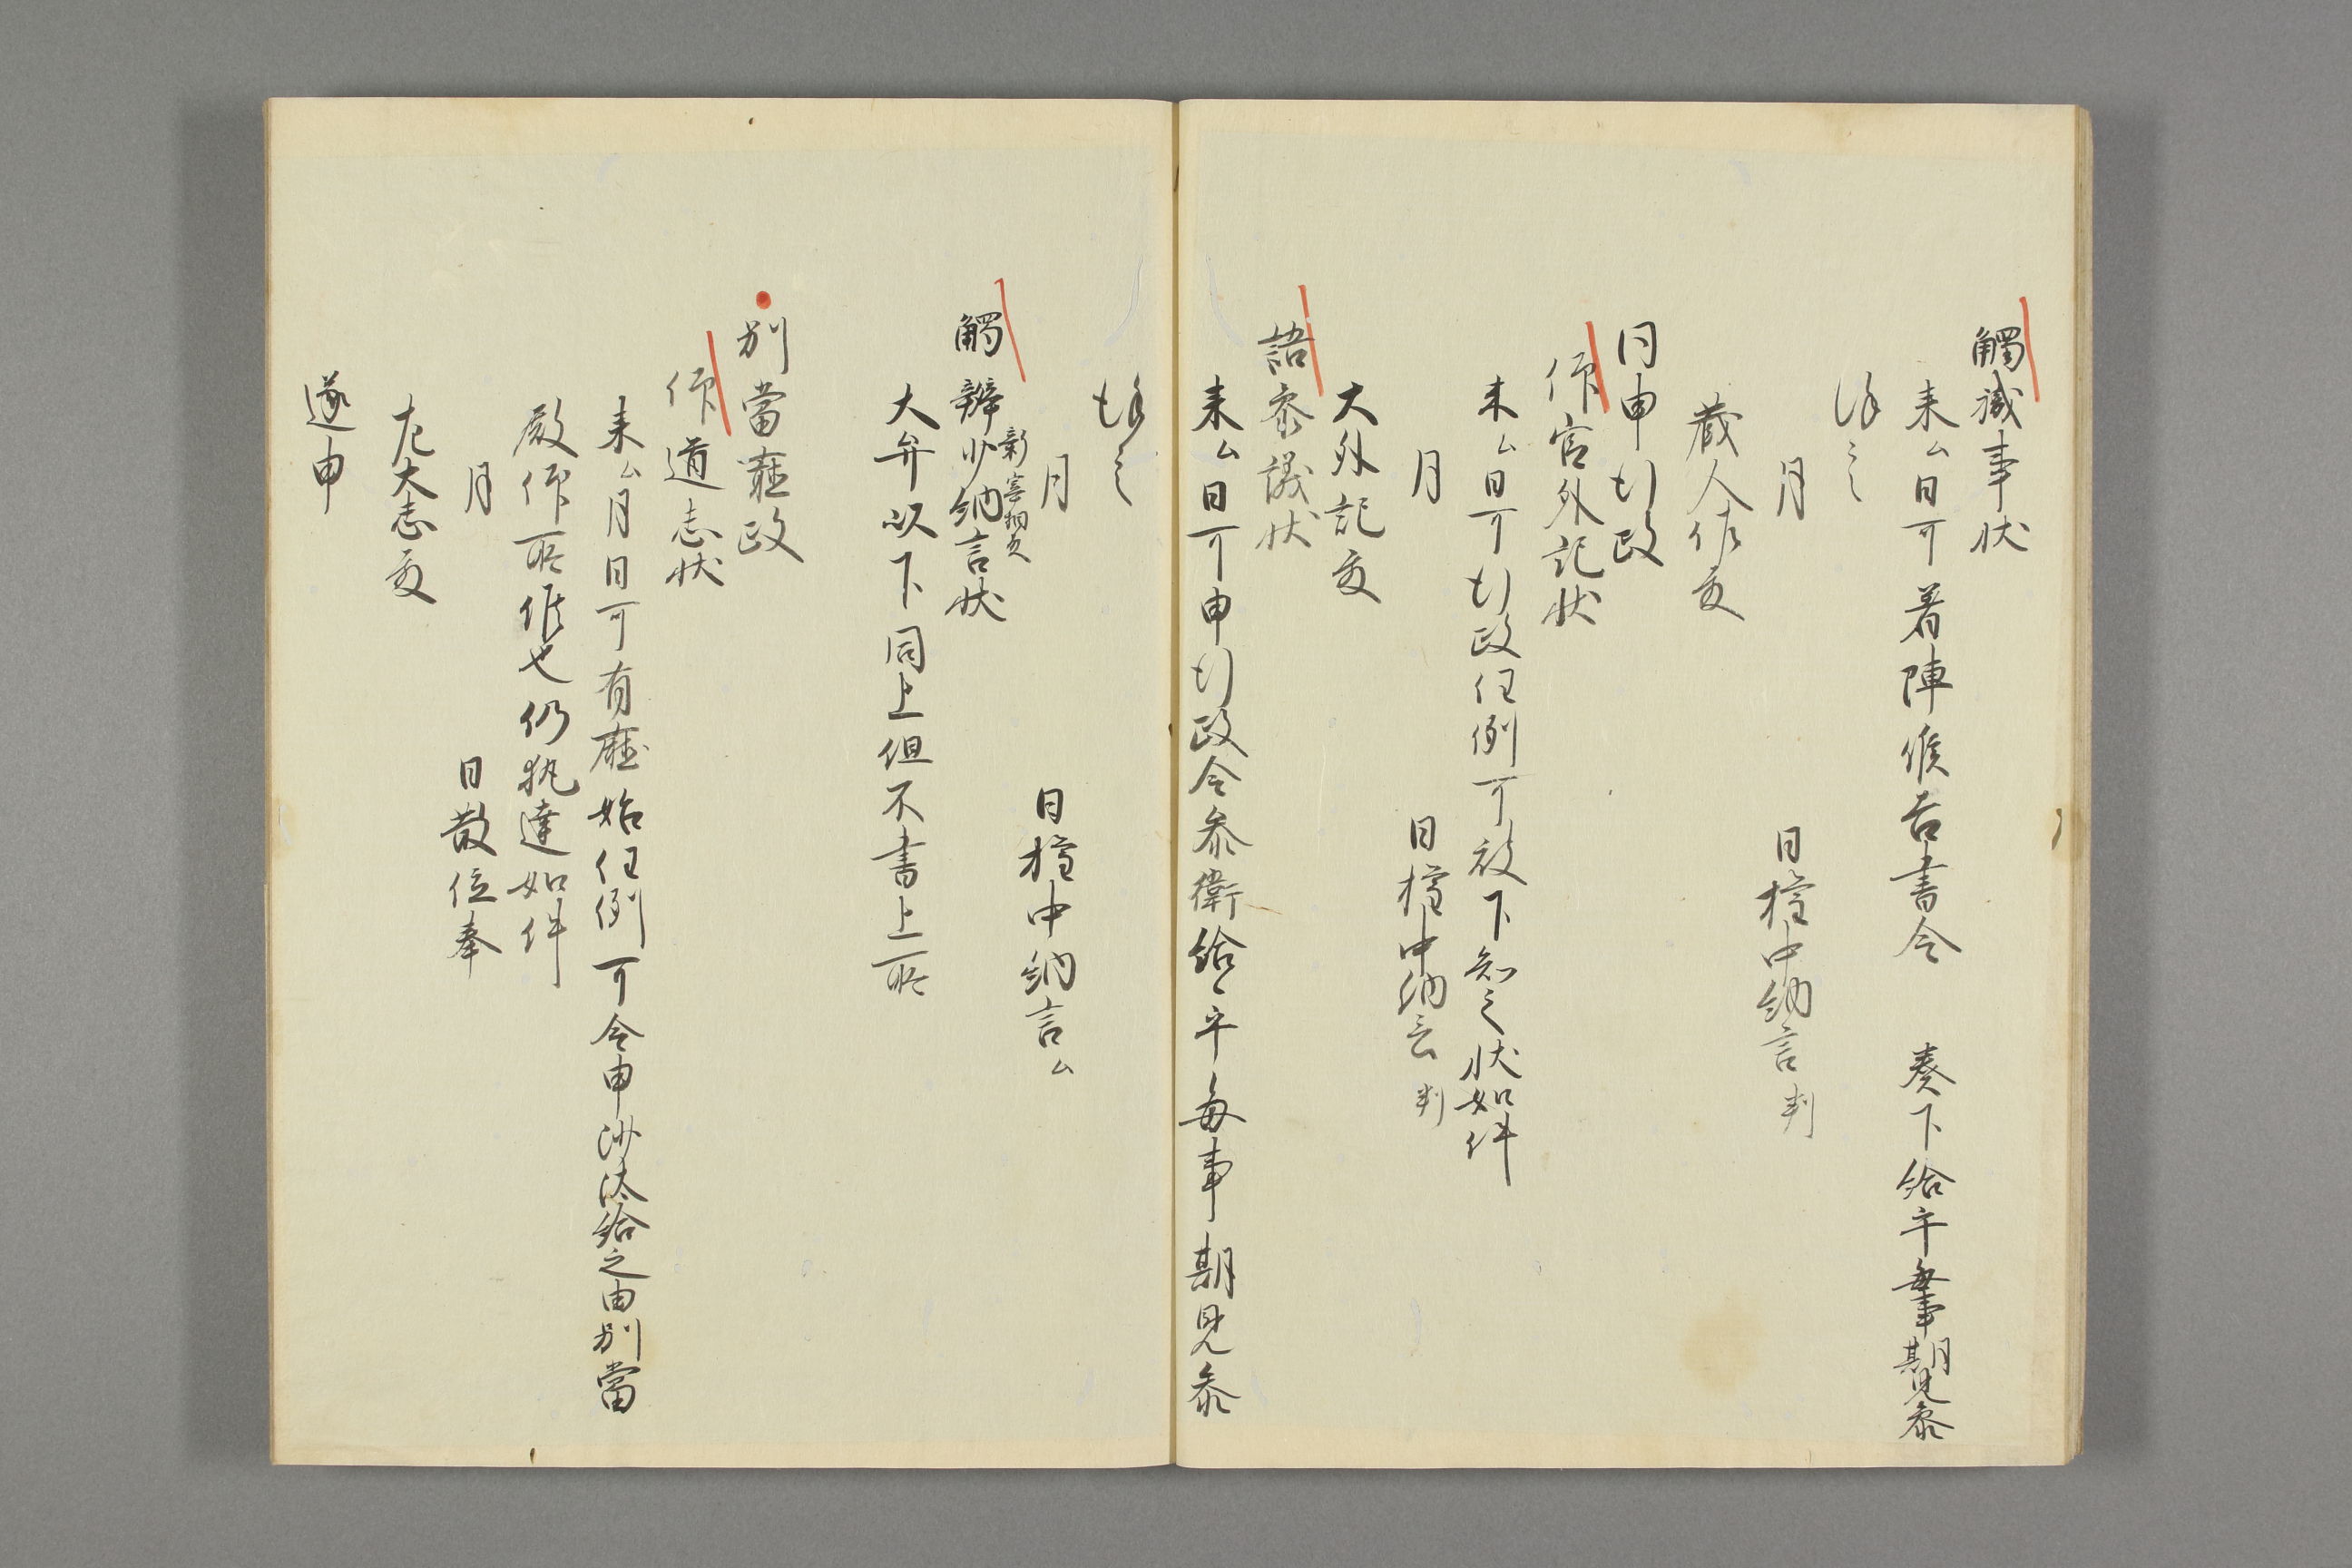 觸職事状
来ム日可着陣候吉書令　奏下給乎毎事期見参
謹言
月　　日権中納言判
蔵人佐殿
同申行政
仰官外記状
来ム日可行政任例可被下知之状如件
月　　日権中納言判
大外記殿
語参議状
来ム日可申行政令参衙給乎毎事期見参
謹言
月　　日権中納言ム
觸辨少納言状
大弁以下同上但不書上所
別當庁政
仰道志状
来ム月日可有庁始任例可令申沙汰給之由別當
殿仰所候也仍執達如件
月　　日散位奉
左大志殿
逐申